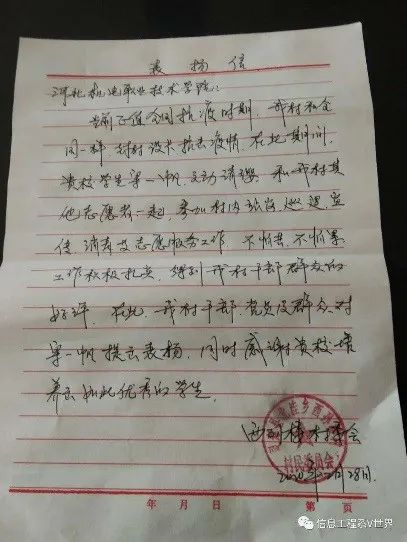 表扬信
河北机电职业技术学院：
当前正值全国抗疫时期，我村和全
国一样封村设卡抗击疫情，在此期间，
贵校学生栗一帆，主动请缨，和我村其
他志愿者一起，参加村内站岗、巡逻、宣
传、消毒等志愿服务工作，不怕苦、不怕累，
工作积极扎实，得到我村干部群众的
好评，在此，我村干部、党员及群众对
栗一帆提出表扬，同时感谢贵校培
养出如此优秀的学生。
村委会
村民委员会
2020年2月28日
年 月 日 第 页
信息工程系V世界